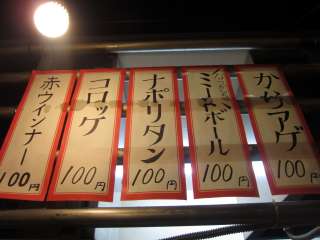 から アゲ
100円
ミートボール
100円
ナポリタン
100円
コロッケ
100円
赤ウィンナー
100円